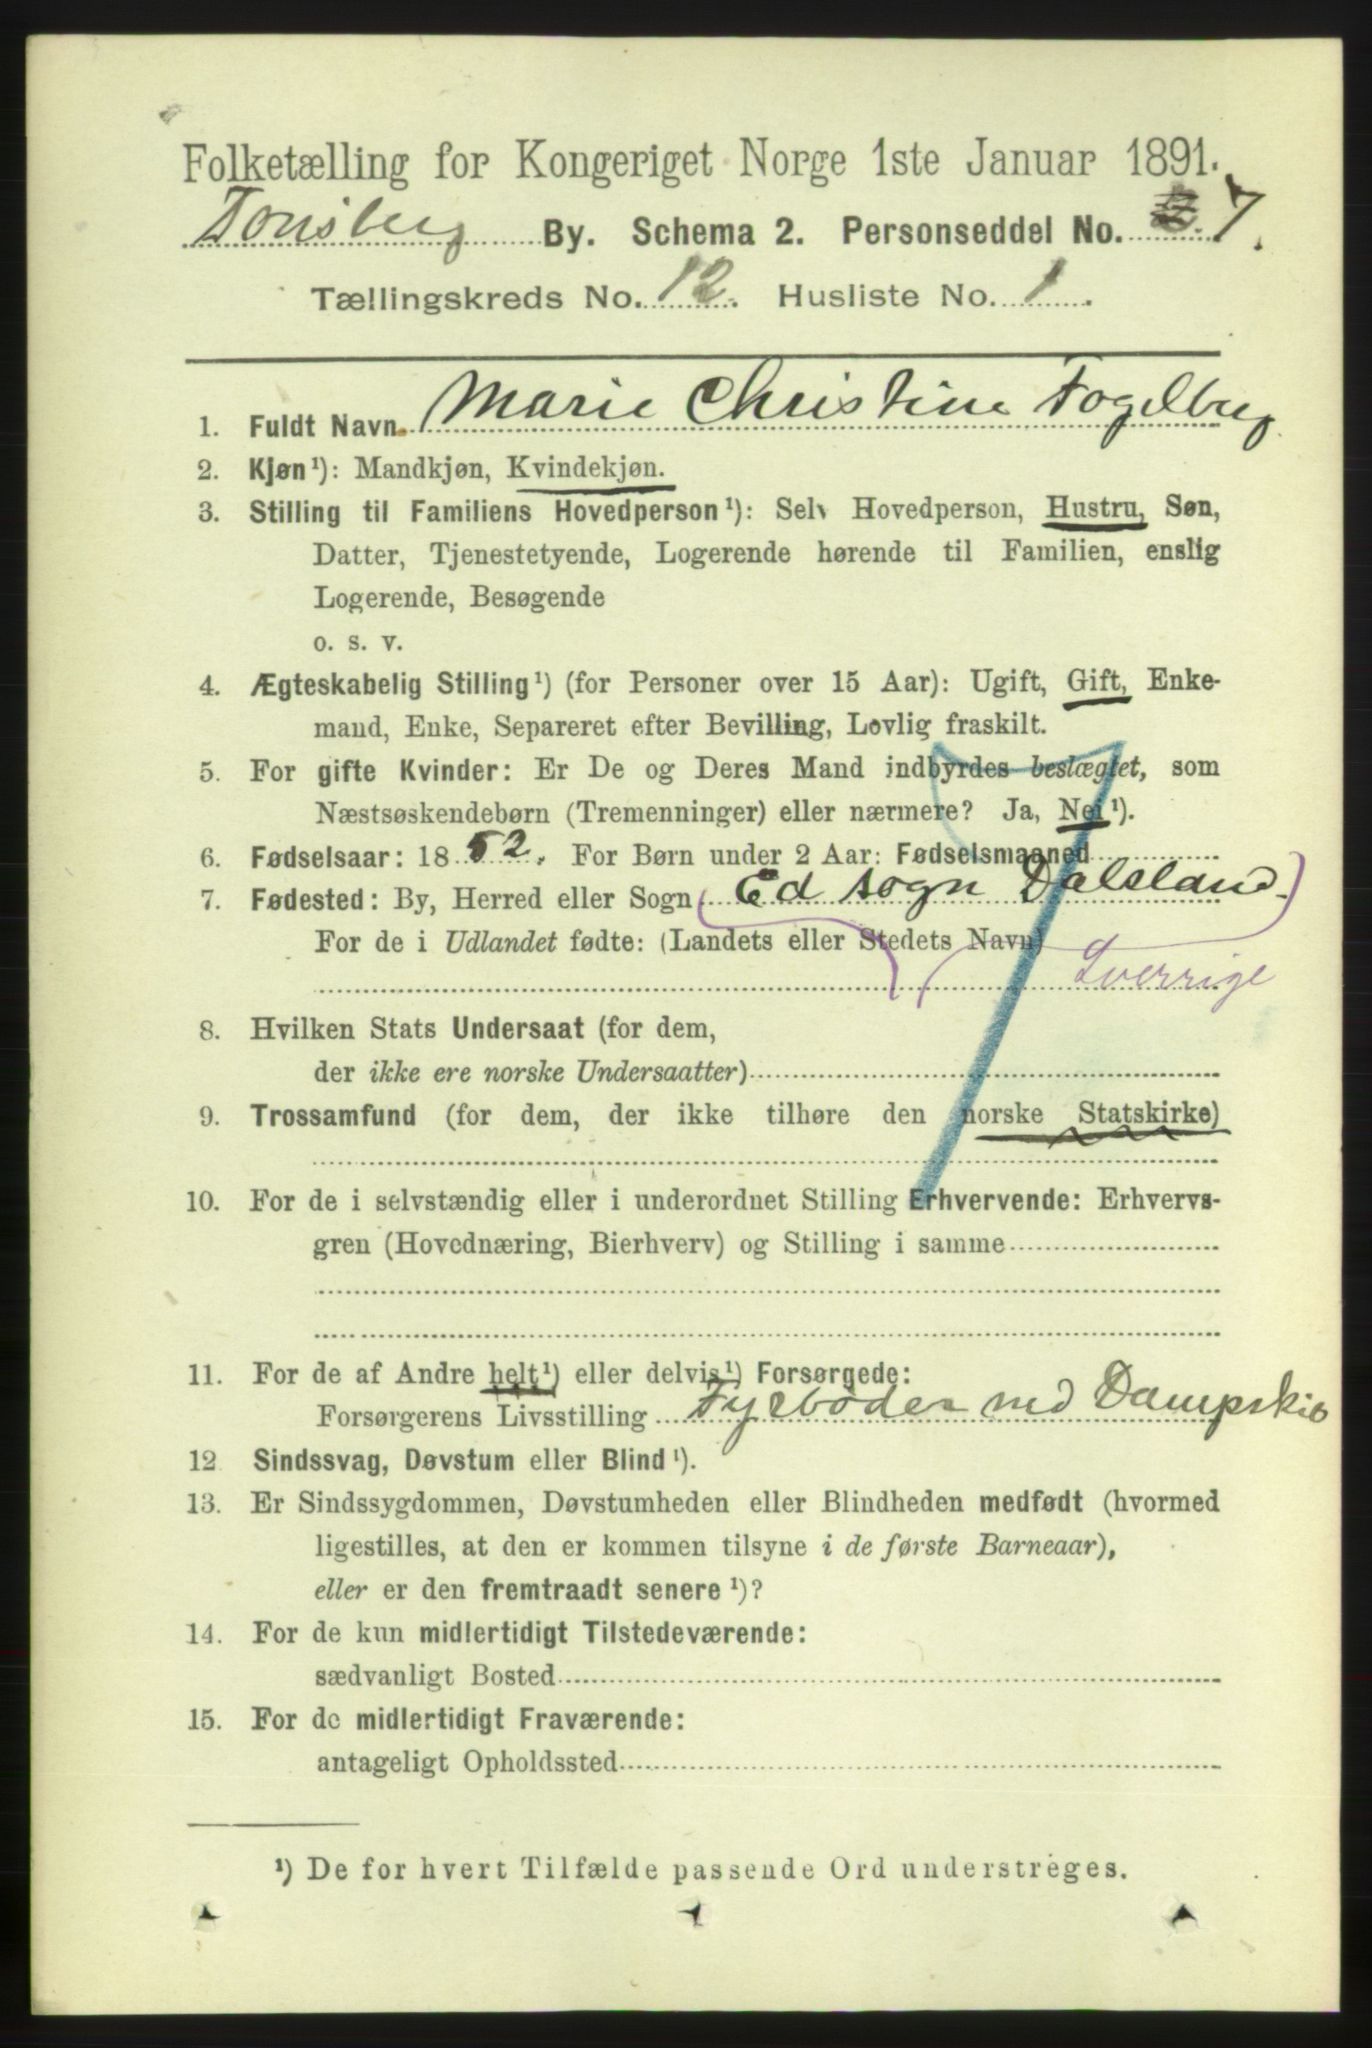 Folketælling for Kongeriget Norge 1ste Januar 1891.
Tønsberg By. Schema 2. Personseddel No. 7.
Tællingskreds No. 12. Husliste No. 1.
1. Fuldt Navn Marie Christine Fogelberg
2. Kjøn¹): Mandkjøn, Kvindekjøn.
3. Stilling til Familiens Hovedperson¹): Selv Hovedperson, Hustru, Søn,
Datter, Tjenestetyende, Logerende hørende til Familien, enslig
Logerende, Besøgende
o. s. v.
4. Ægteskabelig Stilling¹) (for Personer over 15 Aar): Ugift, Gift, Enke-
mand, Enke, Separeret efter Bevilling, Lovlig fraskilt.
5. For gifte Kvinder: Er De og Deres Mand indbyrdes beslægtet, som
Næstsøskendebørn (Tremenninger) eller nærmere? Ja, Nei¹).
6. Fødselsaar: 1852. For Børn under 2 Aar: Fødselsmaaned
7. Fødested: By, Herred eller Sogn (Ed sogn Dalsland)
For de i Udlandet fødte: (Landets eller Stedets Navn)
Sverrige
8. Hvilken Stats Undersaat (for dem,
der ikke ere norske Undersaatter)
9. Trossamfund (for dem, der ikke tilhøre den norske Statskirke)
10. For de i selvstændig eller i underordnet Stilling Erhvervende: Erhvervs-
gren (Hovednæring, Bierhverv) og Stilling i samme
11. For de af Andre helt¹) eller delvis¹) Forsørgede:
Forsørgerens Livsstilling Fyrbøder med Dampskib
12. Sindssvag, Døvstum eller Blind¹).
13. Er Sindssygdommen, Døvstumheden eller Blindheden medfødt (hvormed
ligestilles, at den er kommen tilsyne i de første Barneaar),
eller er den fremtraadt senere¹)?
14. For de kun midlertidigt Tilstedeværende:
sædvanligt Bosted
15. For de midlertidigt Fraværende:
antageligt Opholdssted
¹) De for hvert Tilfælde passende Ord understreges.